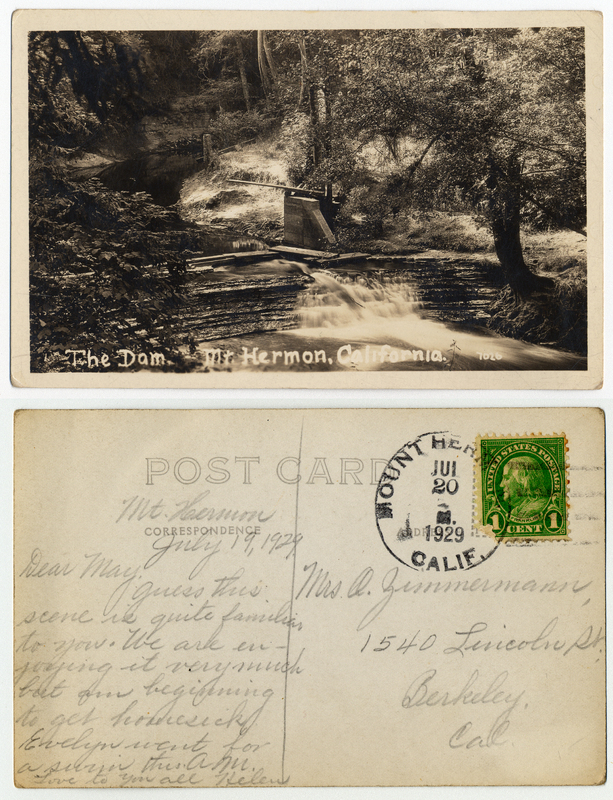 The Dam. Mt. Hermon, California. 1020
POST CARD
CORRESPONDENCE
Mt. Hermon
July 19, 1929
Dear May,
Guess this
scene is quite familiar
to you. We are en-
joying it very much
but am beginning
to get homesick
Evelyn went for
a swim this A.M.
Love to you all Helen
MOUNT HER
JUL
20
M.
1929
CALIF.
UNITED STATES POSTAGE
1 CENT 1
Mrs. O. Zimmermann,
1540 Lincoln St.
Berkeley,
Cal.